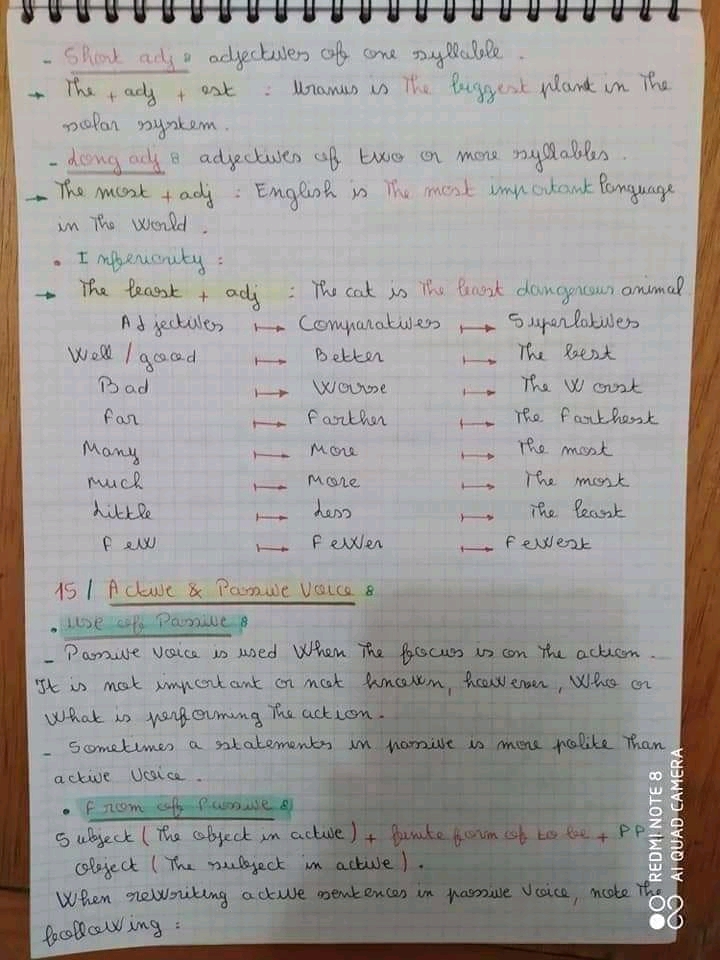 - Short adj : adjectives of one syllable.
→ The + adj + est : Uranus is The biggest plant in The
solar system.
- Long adj : adjectives of two or more syllables.
→ The most + adj : English is The most important language
in The world.
• Inferiority :
→ The least + adj : The cat is The least dangerous animal
Adjectives ↦ Comparatives ↦ Superlatives
Well / good ↦ Better ↦ The best
Bad ↦ Worse ↦ The Worst
far ↦ farther ↦ The farthest
Many ↦ More ↦ The most
Much ↦ More ↦ The most
Little ↦ Less ↦ The least
few ↦ fewer ↦ fewest
15 / Active & Passive Voice :
• Use of Passive :
- Passive voice is used When The focus is on The action.
It is not important or not known, however, Who or
What is performing The action.
- Sometimes a statements in passive is more polite Than
active voice.
• From of Passive :
Subject ( The object in active ) + finite form of to be + PP
object ( The subject in active ).
When rewriting active sentences in passive voice, note The
following :
REDMI NOTE 8
AI QUAD CAMERA